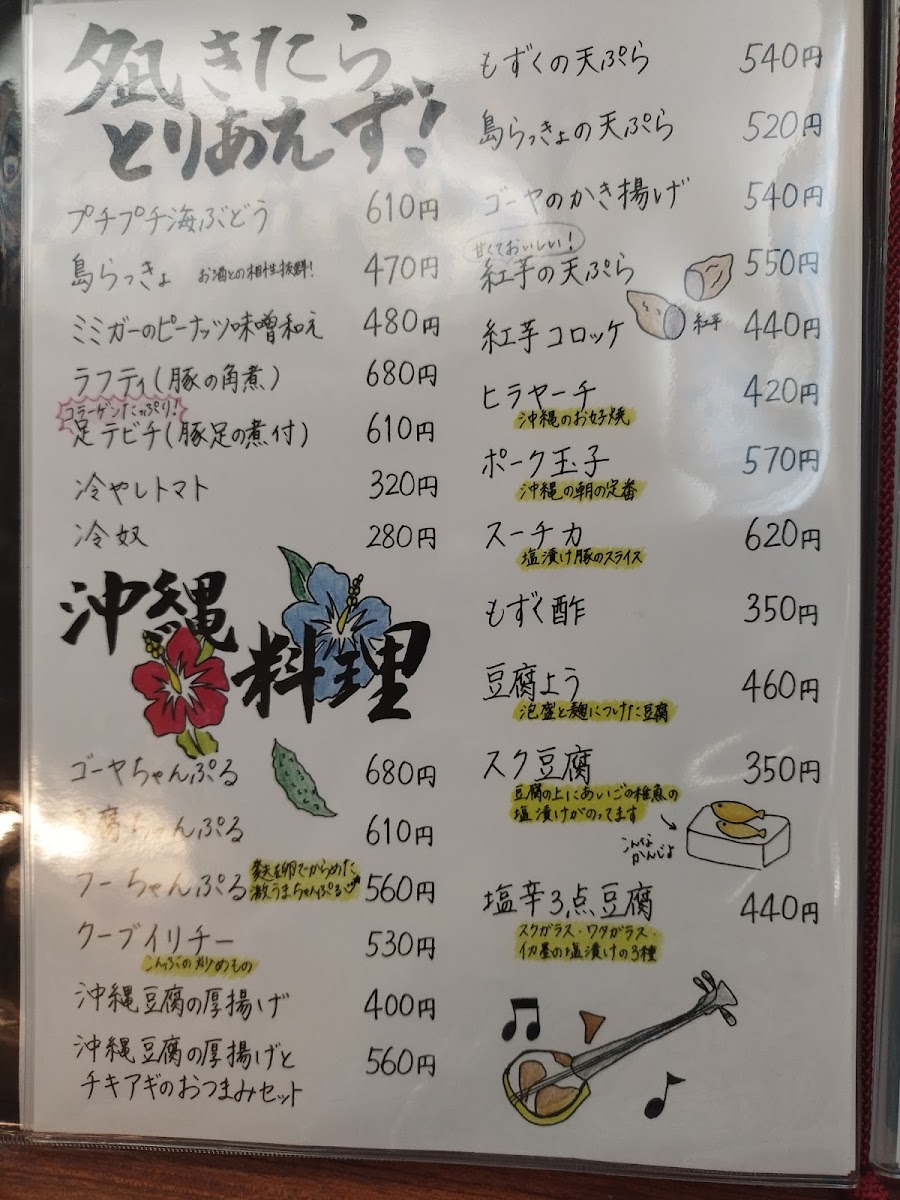 夕凪きたら
とりあえず!
プチプチ海ぶどう 610円
島らっきょ お酒との相性抜群! 470円
ミミガーのピーナッツ味噌和え 480円
ラフティ(豚の角煮) 680円
コラーゲンたっぷり!
足テビチ(豚足の煮付) 610円
冷やしトマト 320円
冷奴 280円
沖縄
料理
ゴーヤちゃんぷる 680円
腐ちゃんぷる 610円
フーちゃんぷる 560円
麩を卵でからめた
激うまちゃんぷる
クーブイリチー 530円
こんぶの炒めもの
沖縄豆腐の厚揚げ 400円
沖縄豆腐の厚揚げと 560円
チキアギのおつまみセット
もずくの天ぷら 540円
島らっきょの天ぷら 520円
ゴーヤのかき揚げ 540円
甘くておいしい!
紅芋の天ぷら 550円
紅芋
紅芋コロッケ 440円
ヒラヤーチ 420円
沖縄のお好焼
ポーク玉子 570円
沖縄の朝の定番
スーチカ 620円
塩漬け豚のスライス
もずく酢 350円
豆腐よう 460円
泡盛と麹につけた豆腐
スク豆腐 350円
豆腐の上にあいごの稚魚の
塩漬けがのってます
こんな
かんじよ
塩辛3点豆腐 440円
スクガラス・ワタガラス・
イカ墨の塩漬けの3種